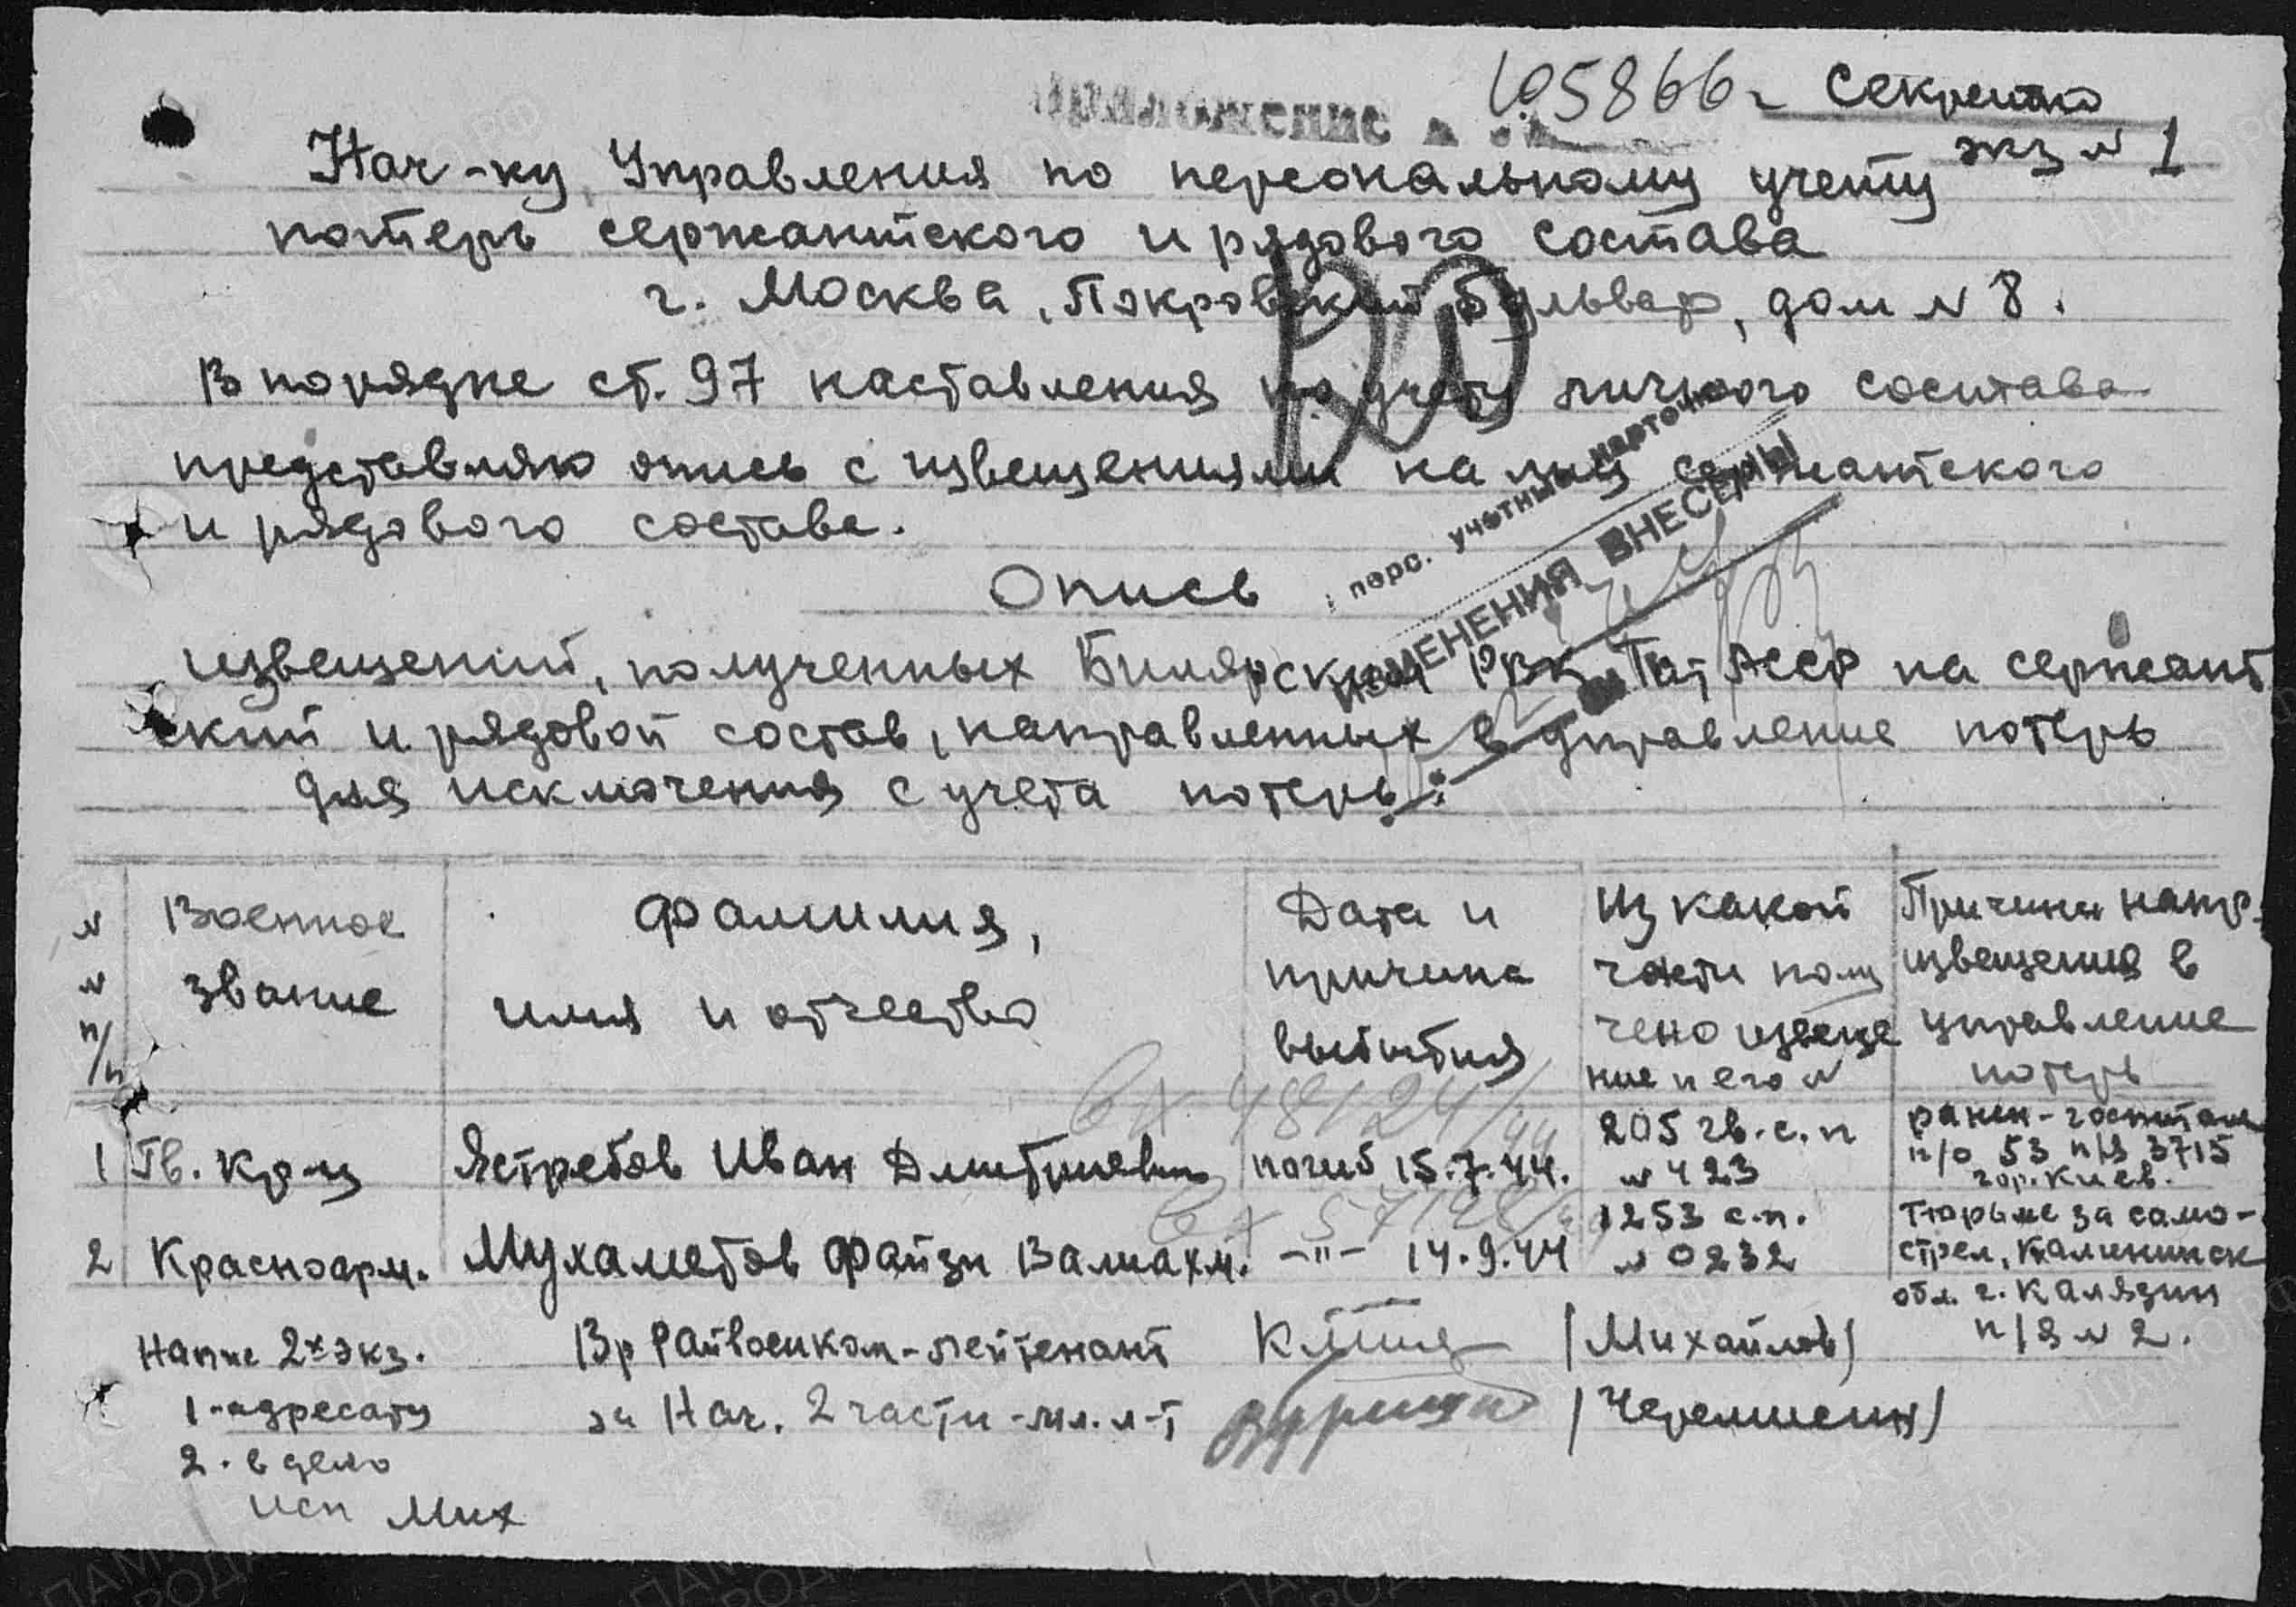 Приложение
105866с Секретно
экз № 1
Нач-ку Управления по персональному учету
потерь сержантского и рядового состава
г. Москва, Покровский бульвар, дом № 8.
В порядке ст. 97 наставления по учету личного состава
представляю опись с извещениями на лиц сержантского
и рядового состава.
перс. учетные карточки
ИЗМЕНЕНИЯ ВНЕСЕНЫ
Опись
извещений, полученных Билярским РВК ТатАССР на сержант
ский и рядовой состав, направленных в управление потерь
для исключения с учета потерь:
№ № п/п
Военное звание
Фамилия, имя и отчество
Дата и причина выбытия
Из какой части полу чено извеще ние и его №
Причина напр. извещения в управление потерь
вх 48124/44
1 Гв. кр-ц Ястребов Иван Дмитриевич погиб 15.7.44. 205 гв. с. п № 423 ранен - госпитале п/о 53 п/я 3715 гор. Киев.
вх 57128/
2 Красноарм. Мухаметов Файзи Валиахм. -"- 14.9.44 1253 с.п. № 0232 Тюрьме за само-
стрел, Калининск
обл. г. Калязин
п/я № 2.
Напис 2х экз. Вр Райвоенком-лейтенант (Михайлов)
1-адресату за Нач. 2 части - мл. л-т (Черемисин)
2. в дело
исп Мих